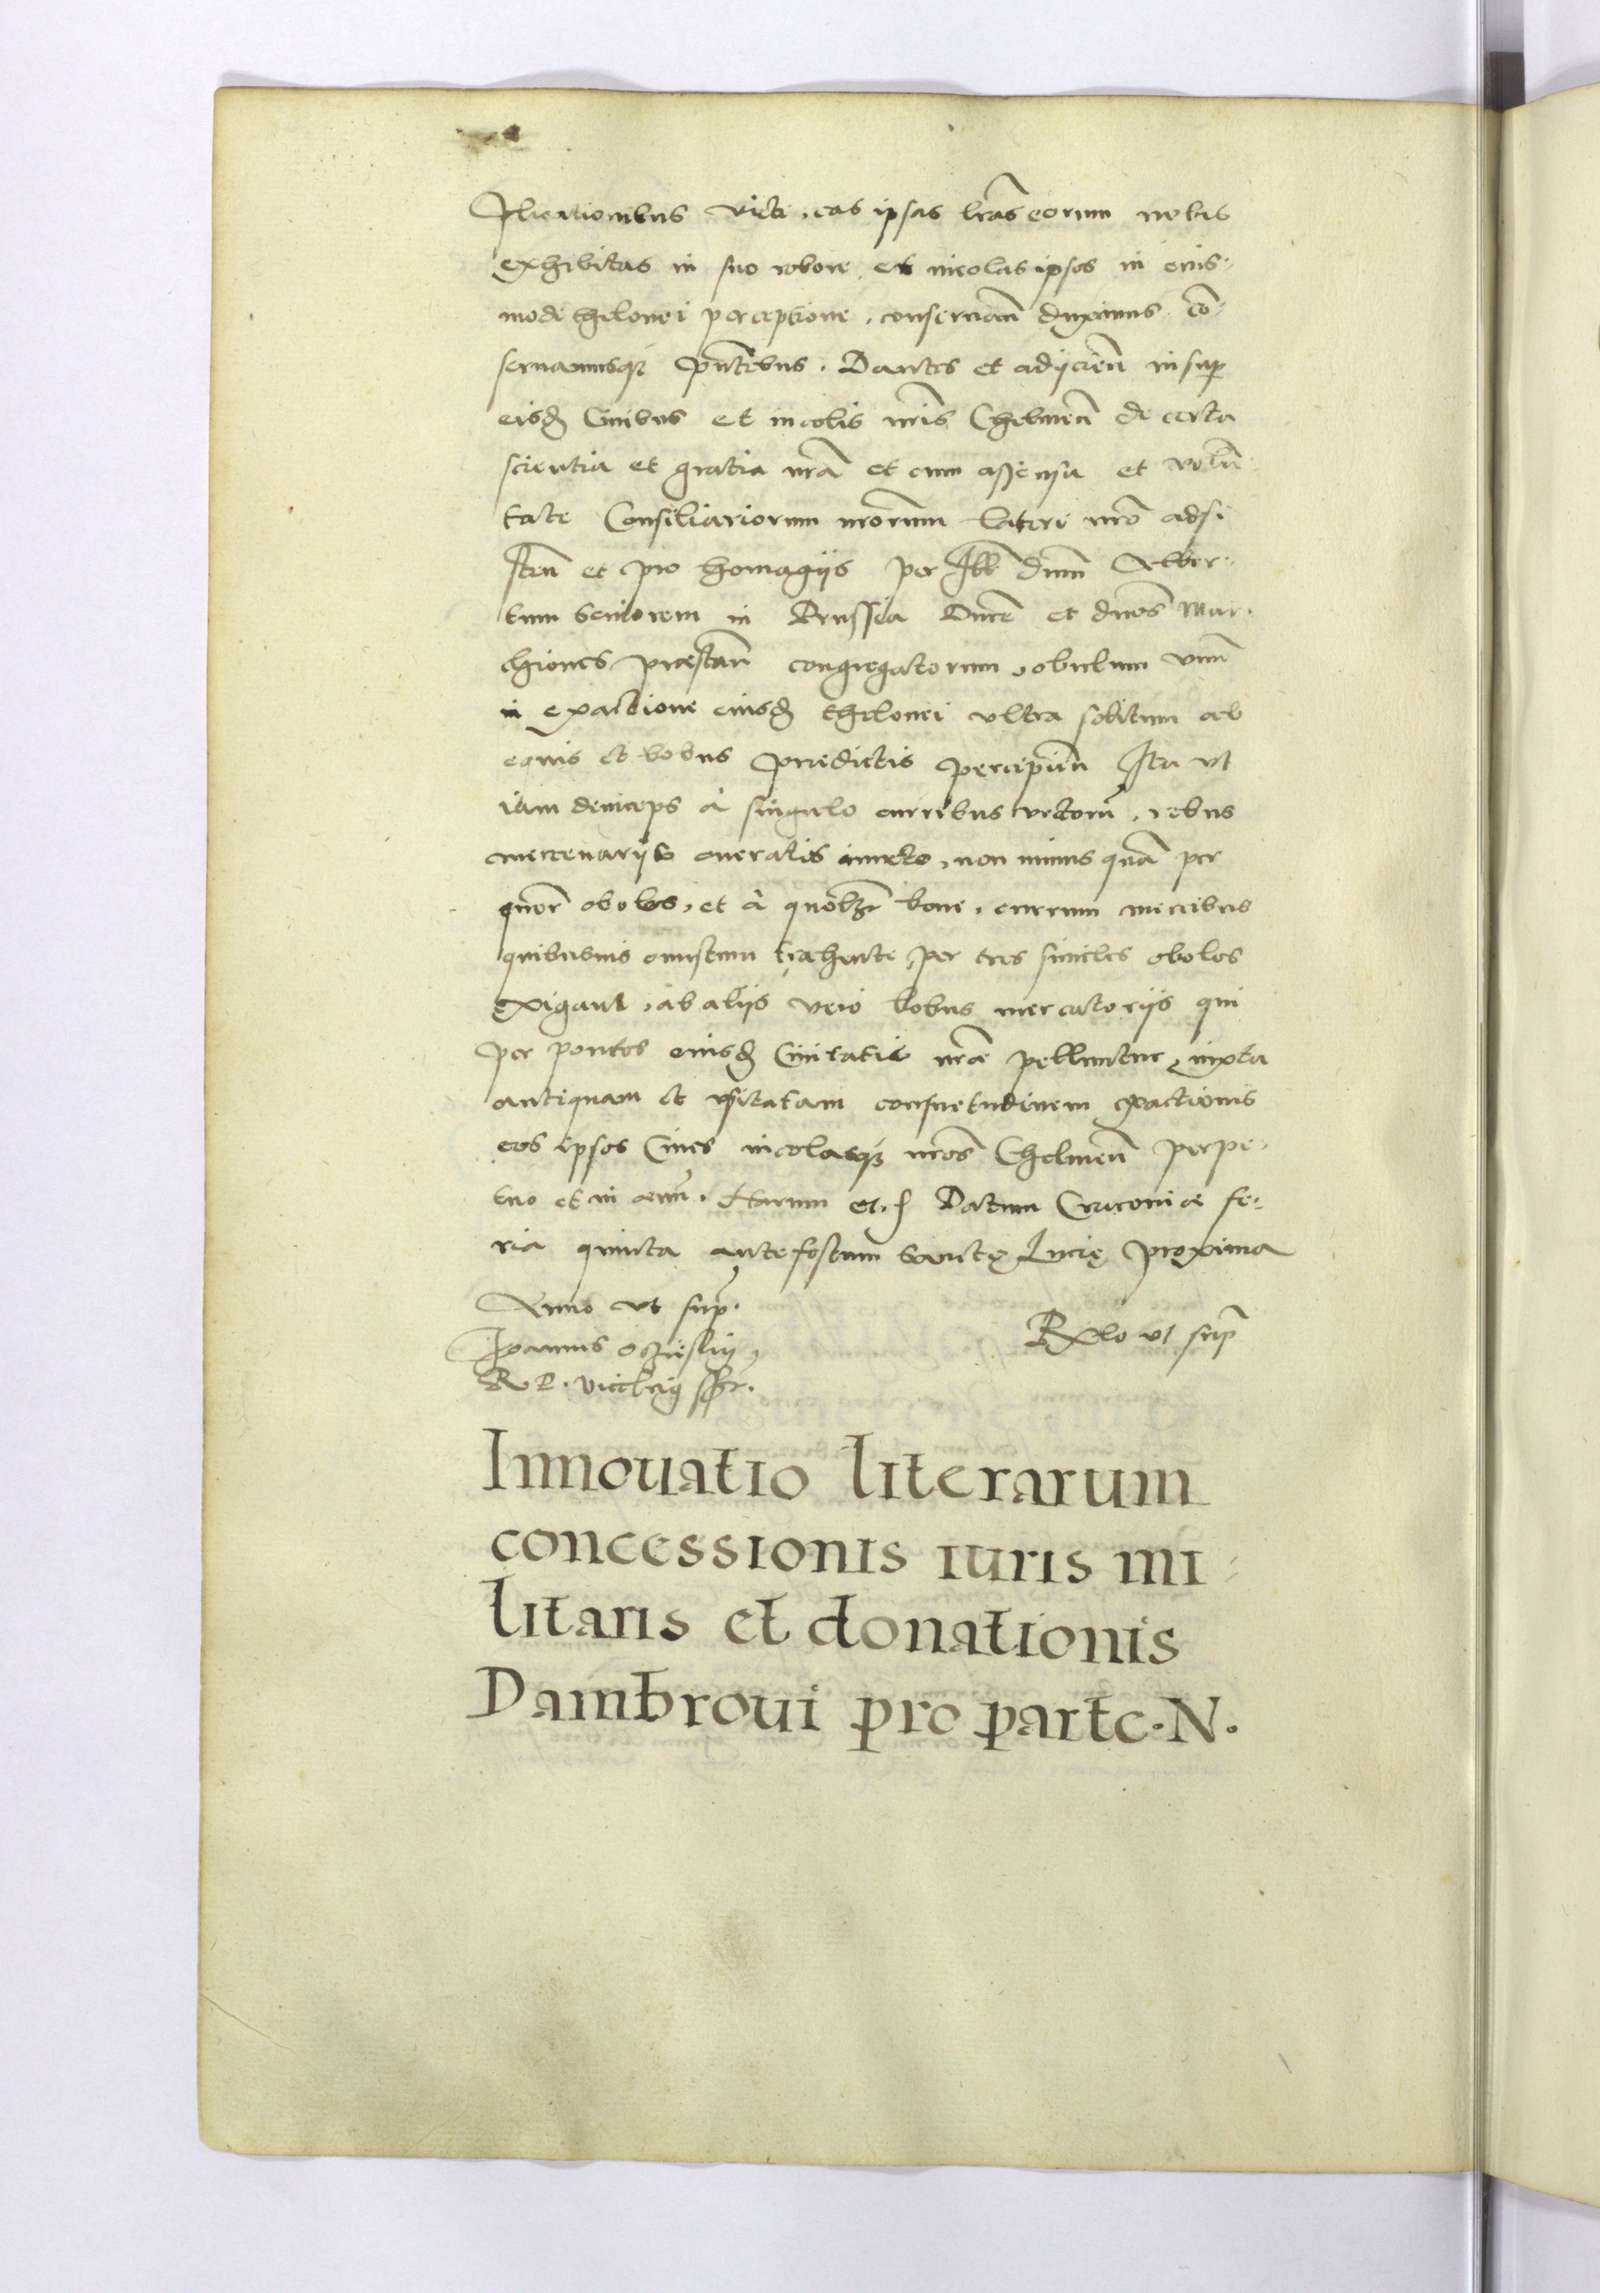 plicationibus victi, eas ipsas lr̃as eorum nobis
exhibitas in suo robore et incolas ipsos in eius-
modi thelonei perceptione, conseruan̄ duximus. cō-
seruamusq3 pñtibus. Dantes et adijcien̄ insup
eisd̄ Ciuibus et incolis nr̃is Chelmen̄ de certa
scientia et gratia nr̃a et cum assensu et volū-
tate Consiliariorum nr̃orum lateri nr̃o adsi
sten̄ et pro homagijs per Ill̃ dnm̃ Alber-
tum Seniorem in Prussia Ducē et dnõs Mar-
chiones præstan̄ congregatorum, obulum vnū
in exactione eiusd̄ thelonei vltra solitum ab
equis et bobus prædictis percipien̄ Ita vt
iam deinceps à singulo curribus vectorū, rebus
mercenarijs oneratis iuncto, non minus quā per
quor̃ obolos, et à quolibet boue, currum mercibus
quibusuis onustum trahente, per tres similes obolos
exigant, ab alijs vero bobus mercatorijs qui
per pontes eiusd̄ Ciuitatis nr̃æ pelluntur, iuxta
antiquam et vsitatam consuetudinem exactionis
eos ipsos Ciues incolasq3 nr̃os Chelmen̄ perpe-
tuo et in æuū. Harum etc. Datum Cracouiæ fe-
ria quinta ante festum Sanctę Lucię proxima
Anno vt sup̃.
Joannes Ocieskij
R. P. Vicecancellarius sspt.
Rxlo vt sup̃
Innouatio literarum
concessionis iuris mi-
litaris et donationis
Dambroui pro parte. N.